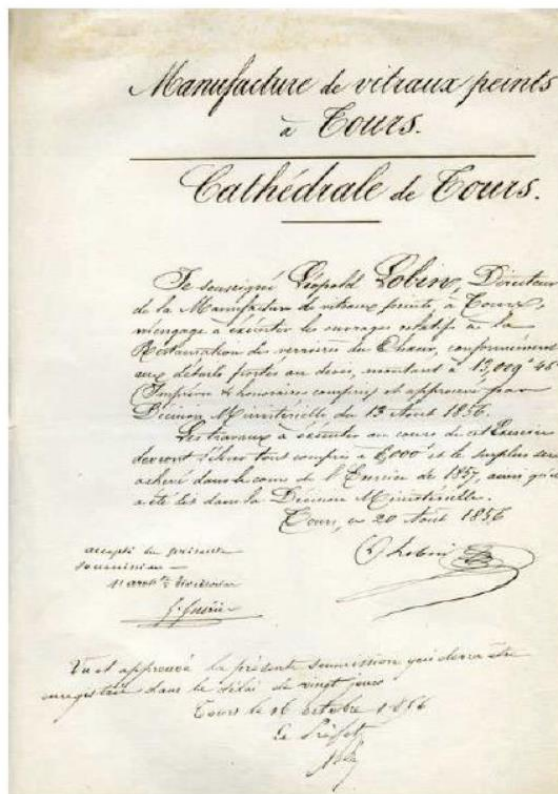 Manufacture de vitraux peints
à Tours.
Cathédrale de Tours.
Je soussigné Léopold Lobin, Directeur
de la Manufacture de vitraux peints, à Tours,
m'engage à exécuter les ouvrages relatifs à la
Restauration des verrières du Chœur, conformément
aux détails portés au devis, montant à 13,009 46
(Imprévu & honoraires compris) et approuvé par
Décision Ministérielle du 13 Août 1856.
Les travaux à exécuter au cours de cet Exercice
devront s'élever tout compris à 6,000 et le surplus sera
achevé dans le cours de l'Exercice de 1857, ainsi qu'il
a été dit dans la Décision Ministérielle.
Tours, ce 20 Août 1856
accepté la présente
soumission
L. Lobin
G. Guérin
Vu et approuvé la présente soumission qui devra être
enregistrée dans le délai de vingt jours
Tours le 16 octobre 1856
Le Préfet